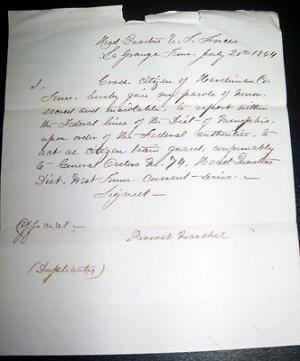 Head Quarters U. S. Forces
La Grange Tenn. July 20th 1864
I, Crade, Citizen of Hardiman Co
Tenn. hereby give my parole of honor,
sacred and inviolable, to report within
the Federal lines of the Dist of Memphis,
upon order of the Federal authorities, to
act as citizen train guard, conformably
to General Orders No. 74, Head Quarters
Dist. West Tenn. current series.
Signed
Official,
Provost Marshal
(Duplicates)